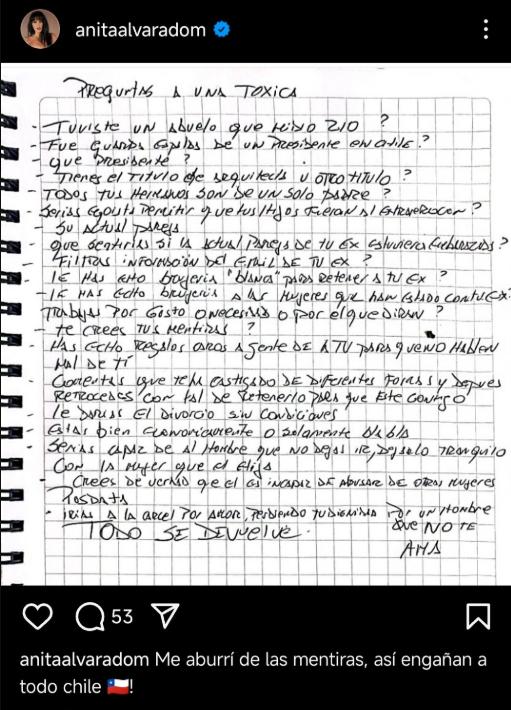 anitaalvaradom
Preguntas A UNA TOXICA
- Tuviste un abuelo que hizo 210 ?
- Fue guardia espalda de un Presidente en chile ?
- que Presidente ?
- Tienes el titulo de arquitecta u otro titulo ?
- TODOS tus Hermanos son de un solo padre ?
- Serias egoista Permitir que tus Hijos fueran al extranjero con ?
- su actual pareja
- que sentirias si la actual Pareja de tu ex estuviera embarazada ?
- Filtras informacion del email de tu ex ?
- le Has echo brujeria "blanca" para Retener a tu ex ?
- le HAS echo brujeria A las mujeres que han estado con tu ex.
- Trabajas Por Gosto o necesidad o por el que diran ?
- te crees tus mentiras ?
- HAS echo Regalos caros a gente DE LA TV para que NO Hablen
mal de tí
- Comentas que te ha castigado DE Diferentes Formas y depues
Retrocedes con tal de Retenerlo para que Este contigo
- le darias El Divorcio sin Condiciones
- Estas bien economicamente o solamente
- Serias capaz de al Hombre que NO dejas ir, dejalo tranquilo
Con la mujer que el elija
- Crees de verdad que el es incapaz DE abusar DE otras mujeres
Posdata
- irias A la carcel por Amor, perdiendo tu dignidad Por un Hombre
que NO TE
AMA
TODO SE DEVUELVE.
53
anitaalvaradom Me aburrí de las mentiras, así engañan a
todo chile 🇨🇱!